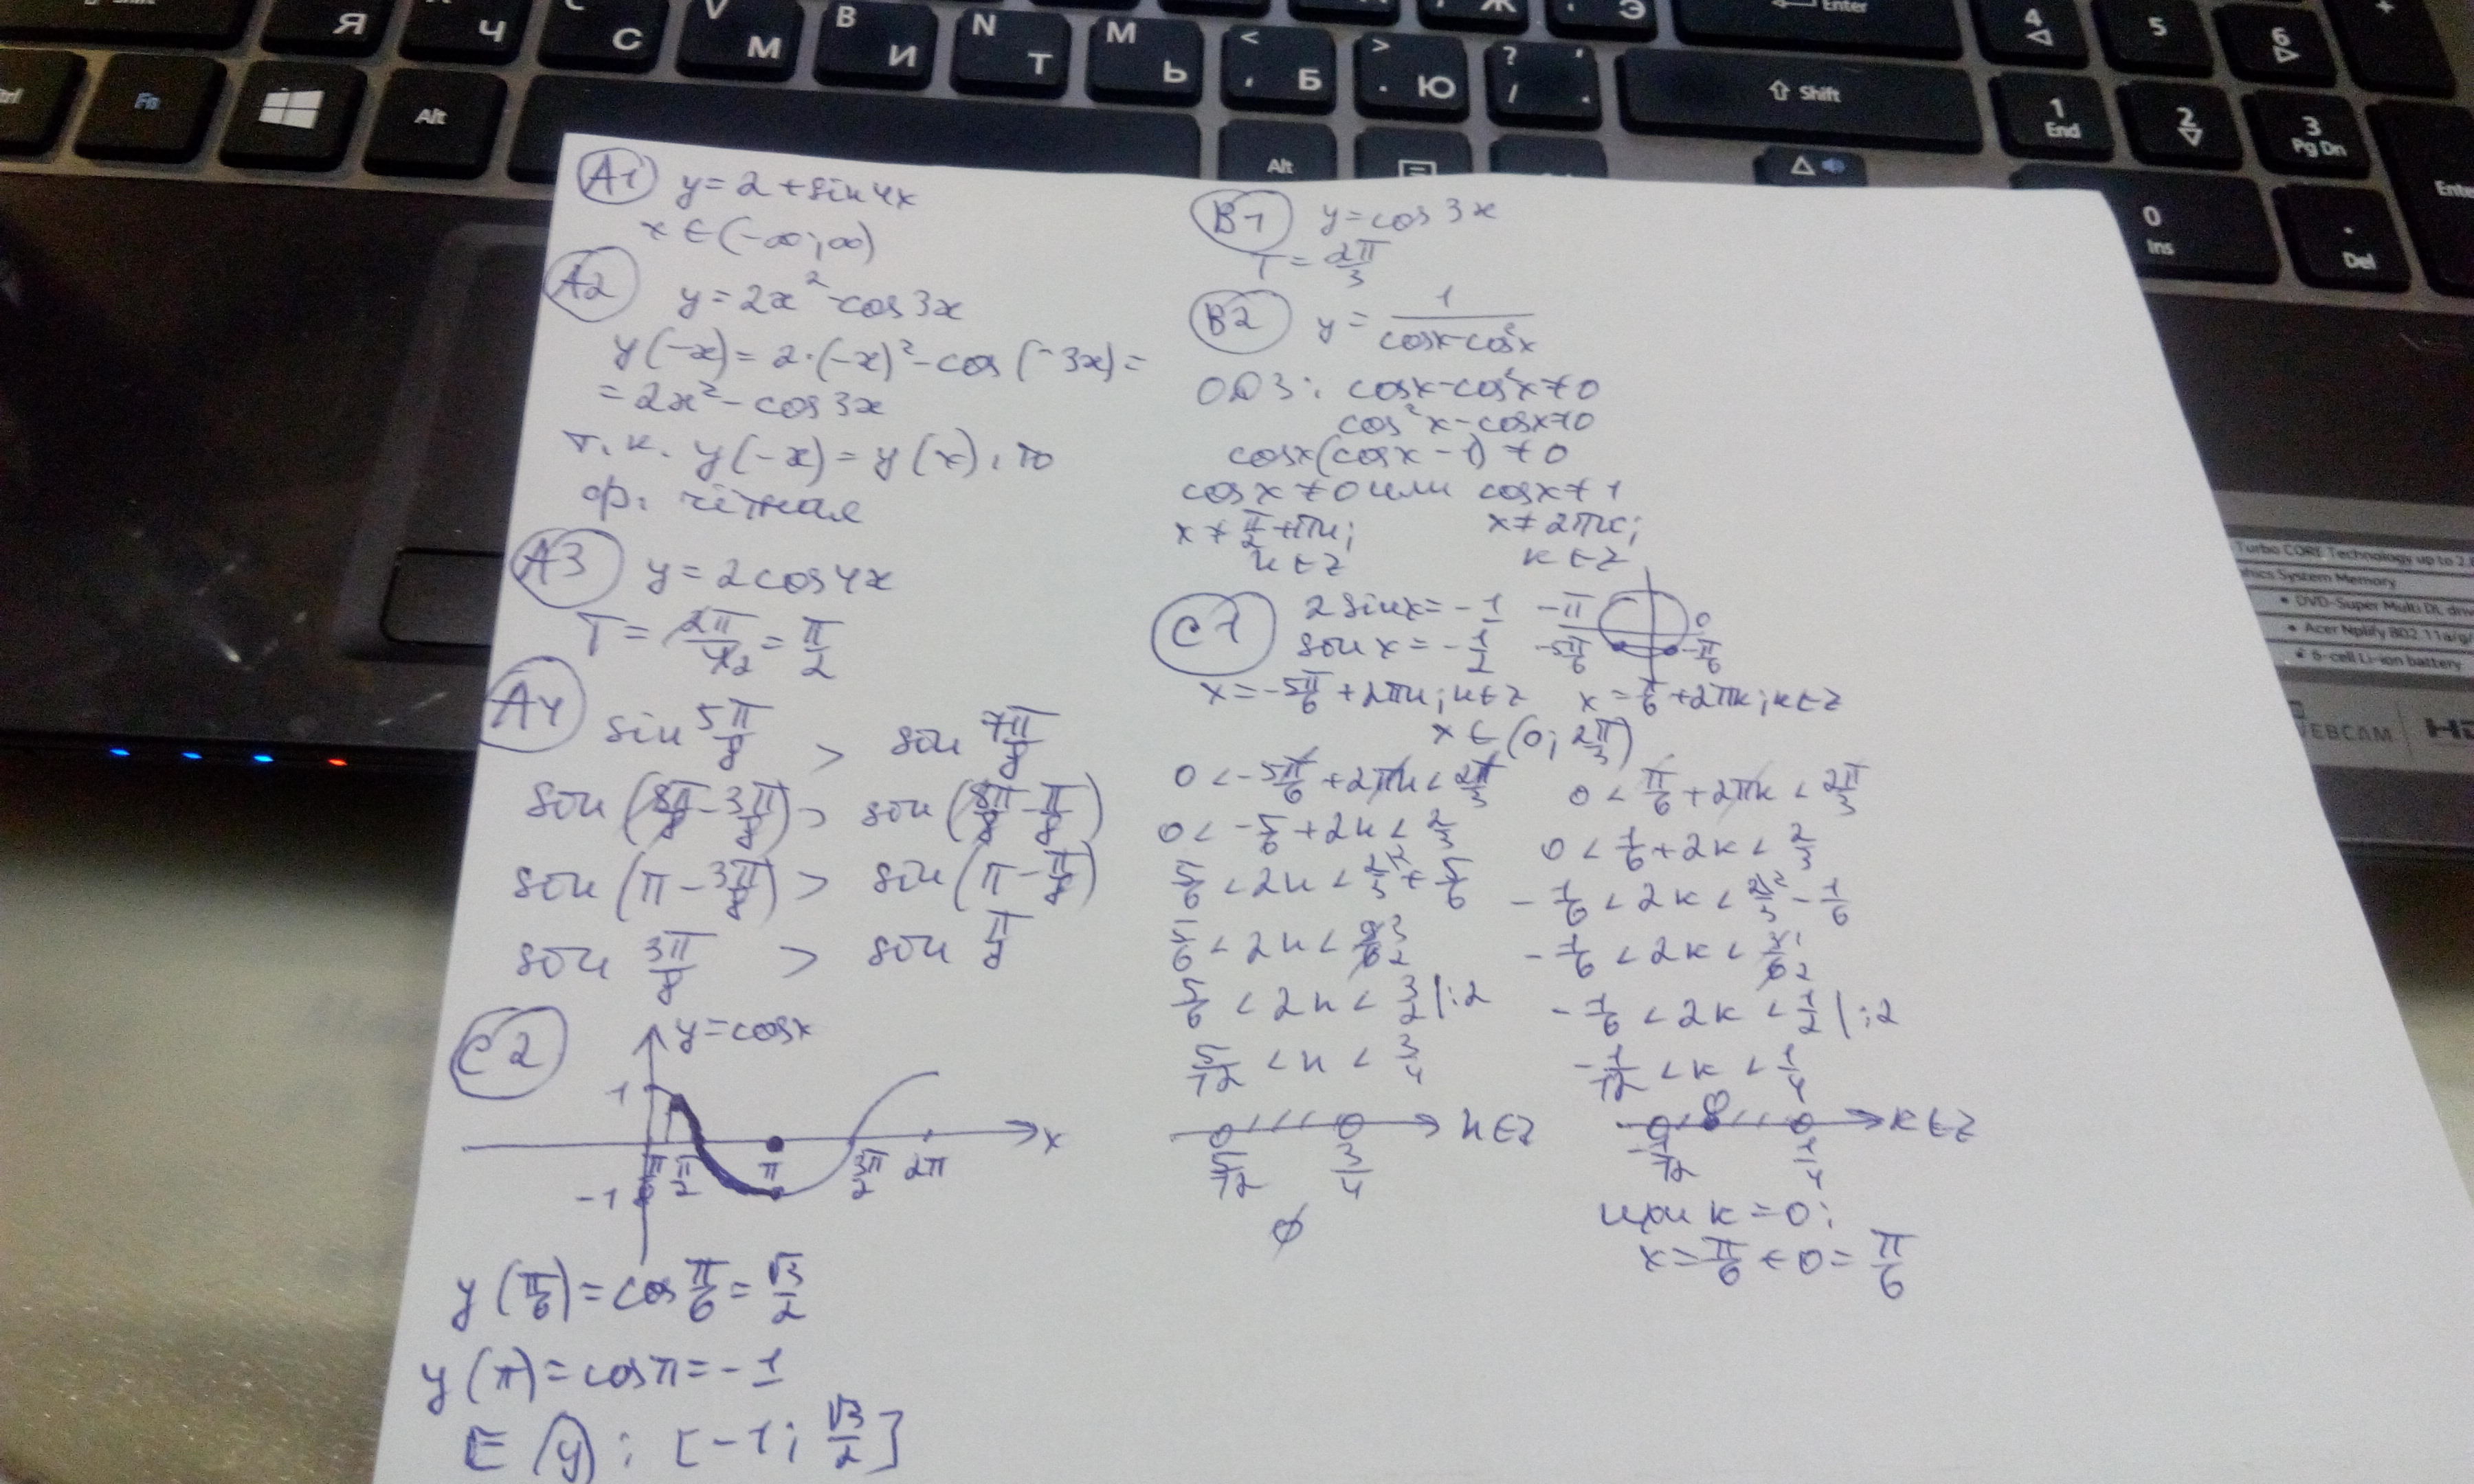 Я
Ч
С
V М
B И
N Т
M Ь
< , Б
> . Ю
? / .
Э
Enter
4
5
6
Fn
Alt
Shift
1 End
2
3 Pg Dn
Alt
0 Ins
. Del
Enter
A1 y = 2 + sin 4x
x ∈ (-∞; ∞)
A2 y = 2x² - cos 3x
y(-x) = 2·(-x)² - cos(-3x) =
= 2x² - cos 3x
т.к. y(-x) = y(x), то
ф. чётная
A3 y = 2cos 4x
T = 2π/4 2 = π/2
A4 sin 5π/8 > sin 7π/8
sin(8π/8 - 3π/8) > sin(8π/8 - π/8)
sin(π - 3π/8) > sin(π - π/8)
sin 3π/8 > sin π/8
C2 y = cosx
1
x
π/6 π/2 π 3π/2 2π
-1
y(π/6) = cos π/6 = √3/2
y(π) = cosπ = -1
E(y): [-1; √3/2]
B1 y = cos 3x
T = 2π/3
B2 y = 1/(cosx - cos²x)
ОДЗ: cosx - cos²x ≠ 0
cos²x - cosx ≠ 0
cosx(cosx - 1) ≠ 0
cosx ≠ 0 или cosx ≠ 1
x ≠ π/2 + πn; x ≠ 2πк;
n ∈ Z к ∈ Z
C1 2sinx = -1 -π 0
sin x = -1/2 -5π/6 -π/6
x = -5π/6 + 2πn; n ∈ Z x = π/6 + 2πк; к ∈ Z
x ∈ (0; 2π/3)
0 < -5π/6 + 2πn < 2π/3 0 < π/6 + 2πк < 2π/3
0 < -5/6 + 2n < 2/3 0 < 1/6 + 2к < 2/3
5/6 < 2n < 2/3 \2 + 5/6 -1/6 < 2к < 2/3 \2 - 1/6
5/6 < 2n < 9/6 3 2 -1/6 < 2к < 3/6 1 2
5/6 < 2n < 3/2 |:2 -1/6 < 2к < 1/2 |:2
5/12 < n < 3/4 -1/12 < к < 1/4
n ∈ Z 0 к ∈ Z
5/12 3/4 -1/12 1/4
∅
при к = 0:
x = π/6 + 0 = π/6
Turbo CORE Technology up to 2.
System Memory
DVD-Super Multi DL
Acer Nplify 802.11a/g/
6-cell Li-ion battery
WEBCAM